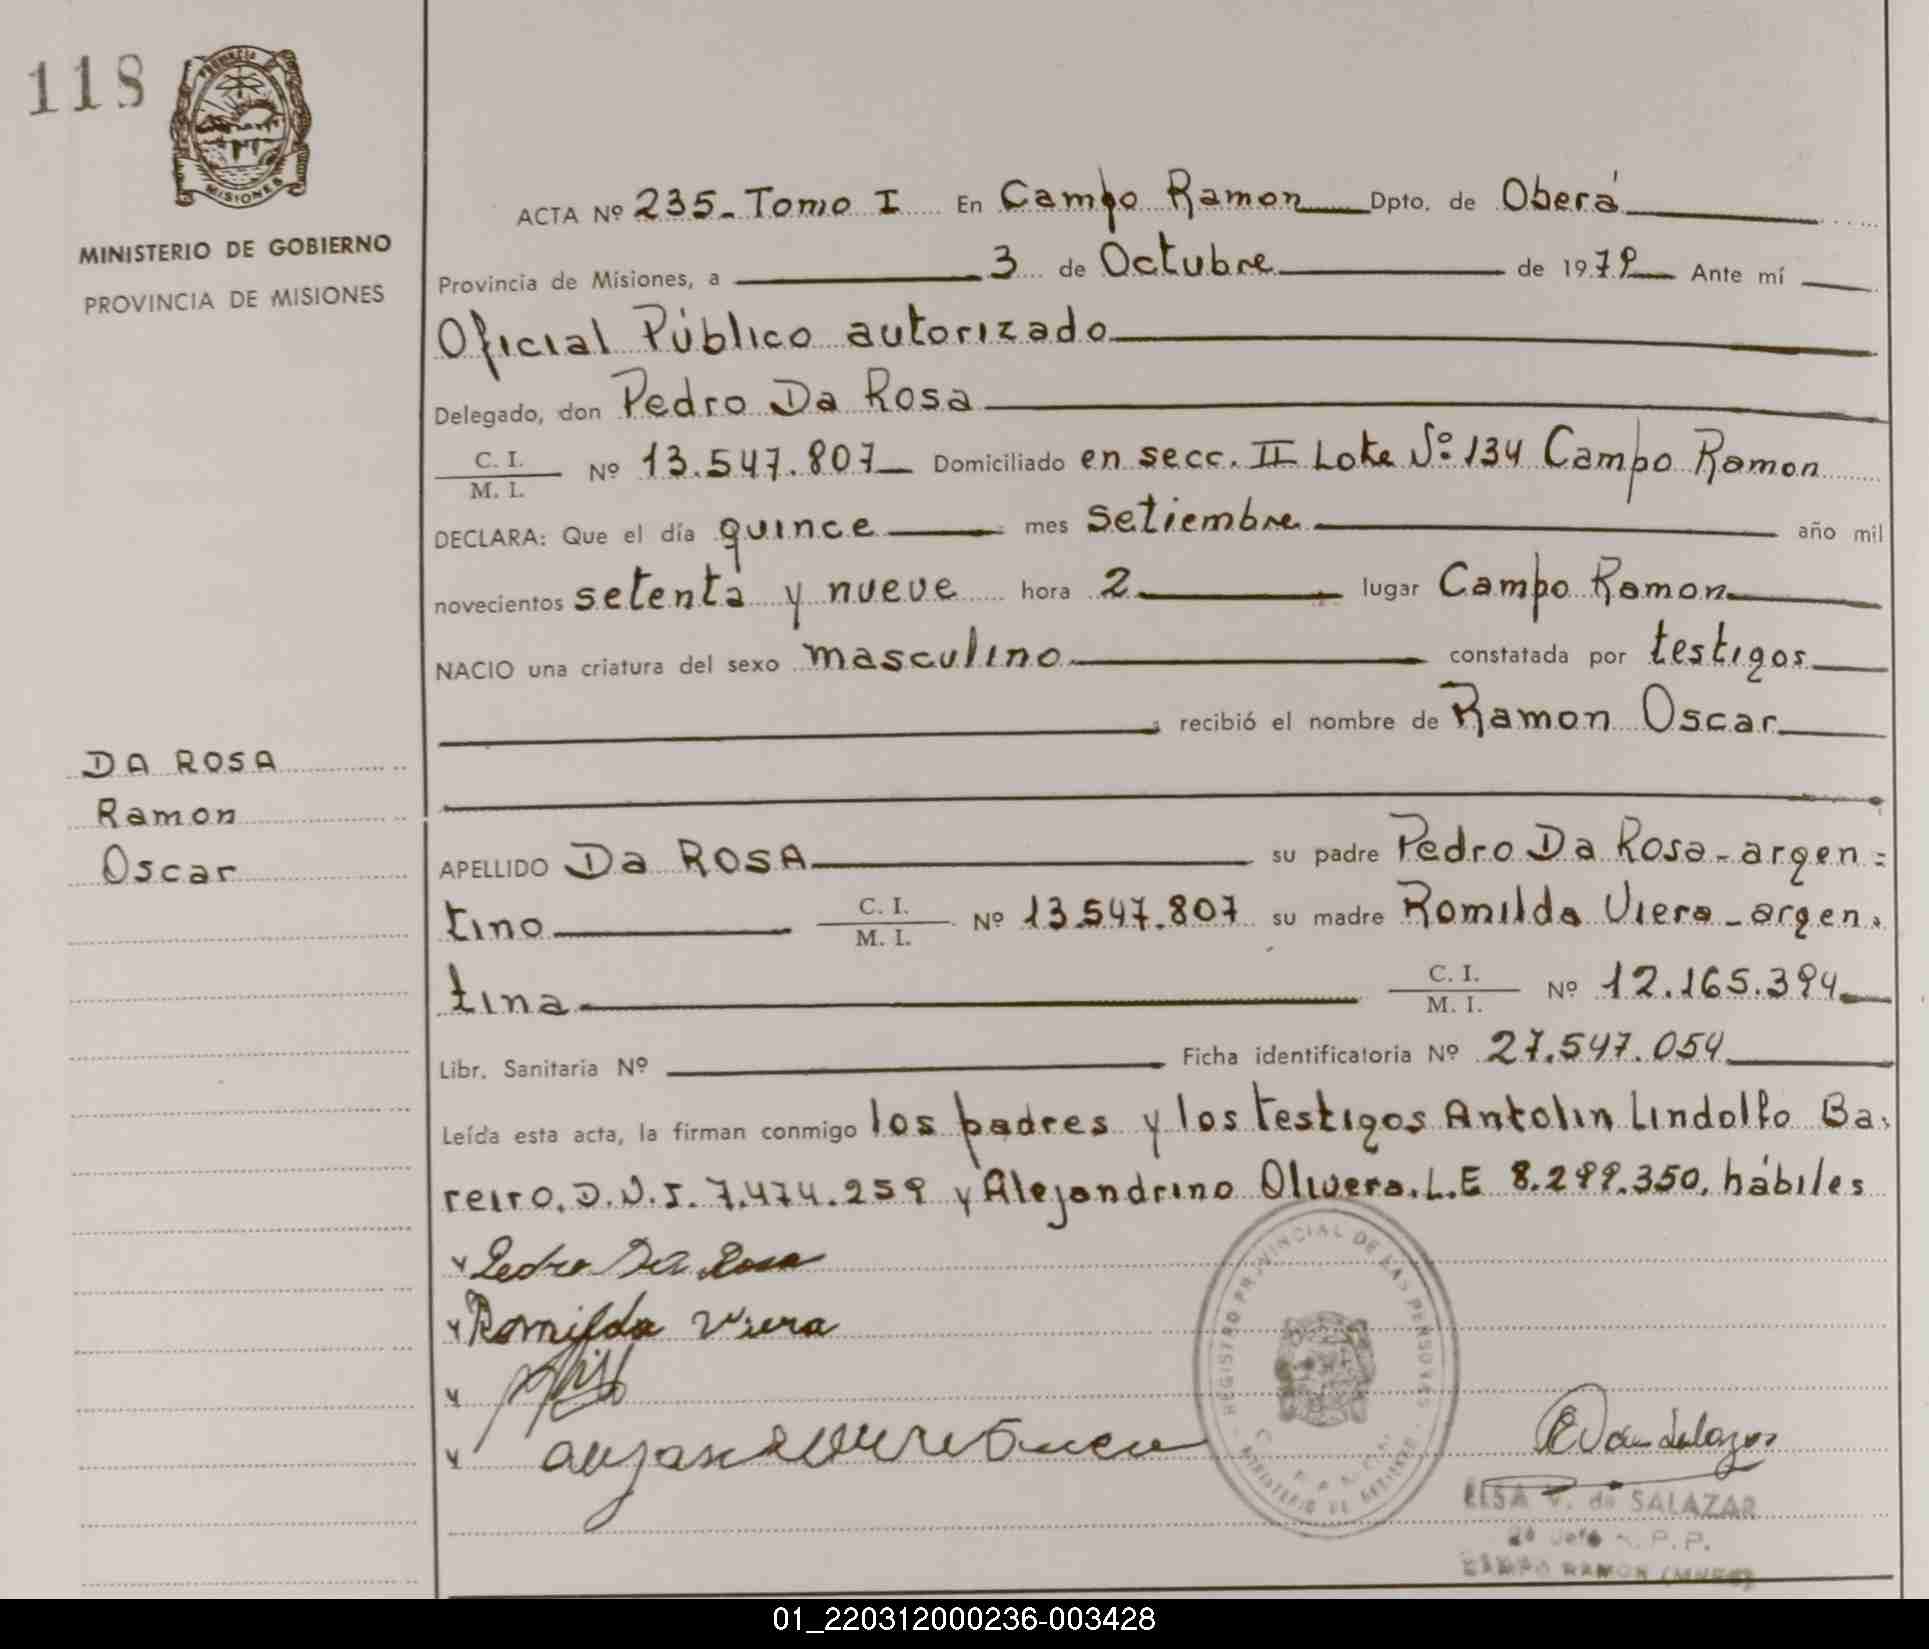 118
PROVINCIA
MISIONES
MINISTERIO DE GOBIERNO
PROVINCIA DE MISIONES
ACTA Nº 235- Tomo I En Campo Ramon Dpto. de Oberá
Provincia de Misiones, a 3 de Octubre de 1979 Ante mí
Oficial Público autorizado
Delegado, don Pedro Da Rosa
C. I. / M. I. Nº 13.547.807 Domiciliado en secc. II Lote Nº 134 Campo Ramon
DECLARA: Que el día quince mes setiembre año mil
novecientos setenta y nueve hora 2 lugar Campo Ramon
NACIO una criatura del sexo masculino constatada por testigos
recibió el nombre de Ramon Oscar
DA ROSA
Ramon
Oscar
APELLIDO Da ROSA su padre Pedro Da Rosa - argen=
tino C. I. / M. I. Nº 13.547.807 su madre Romilda Viera - argen-
tina C. I. / M. I. Nº 12.165.394
Libr. Sanitaria Nº Ficha identificatoria Nº 27.547.054
Leída esta acta, la firman conmigo los padres y los testigos Antolin Lindolfo Ba-
reiro. D.N.I. 7.474.259 y Alejandrino Olivera. L.E 8.299.350. hábiles
Pedro Da Rosa
Romilda Viera
REGISTRO PROVINCIAL DE LAS PERSONAS
MINISTERIO DE GOBIERNO
ELSA V. de SALAZAR
R. P. P.
CAMPO RAMON (MNES)
01_220312000236-003428